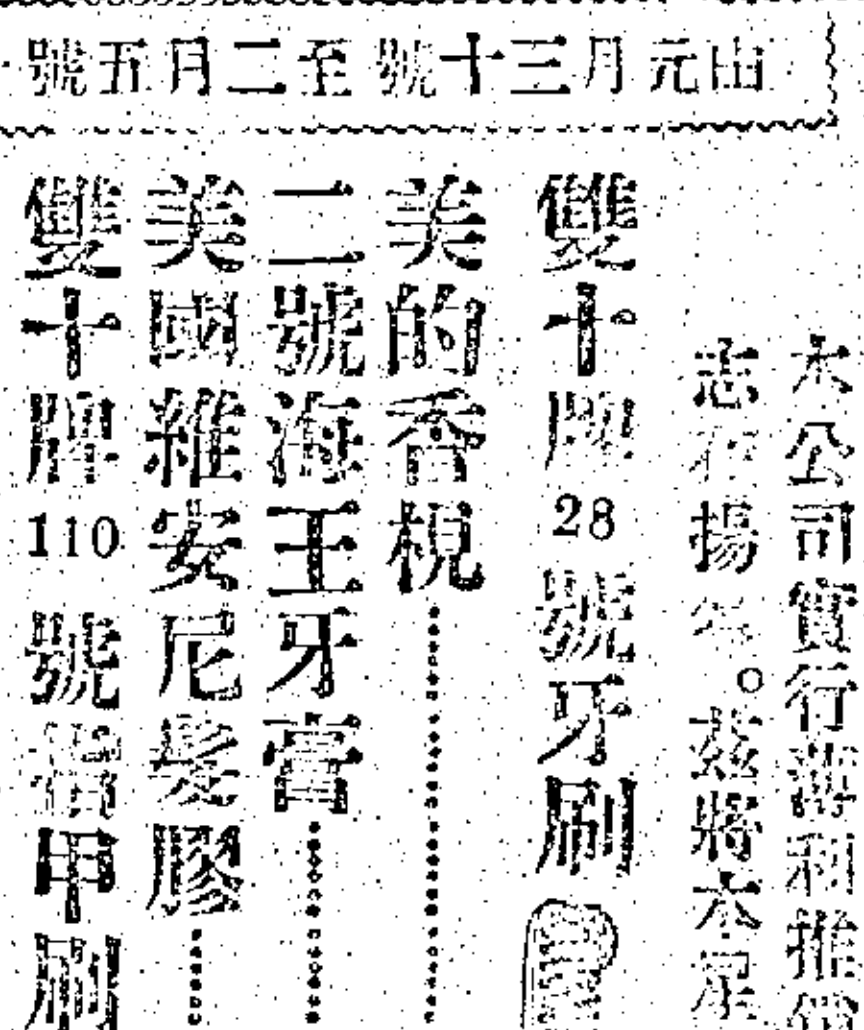 由元月三十號至二月五號
本公司實行薄利推
志在揚。茲將本星
雙十牌28號牙刷
美的香梘
二號海王牙膏
美國維安尼髮膠
雙十牌110號指甲刷